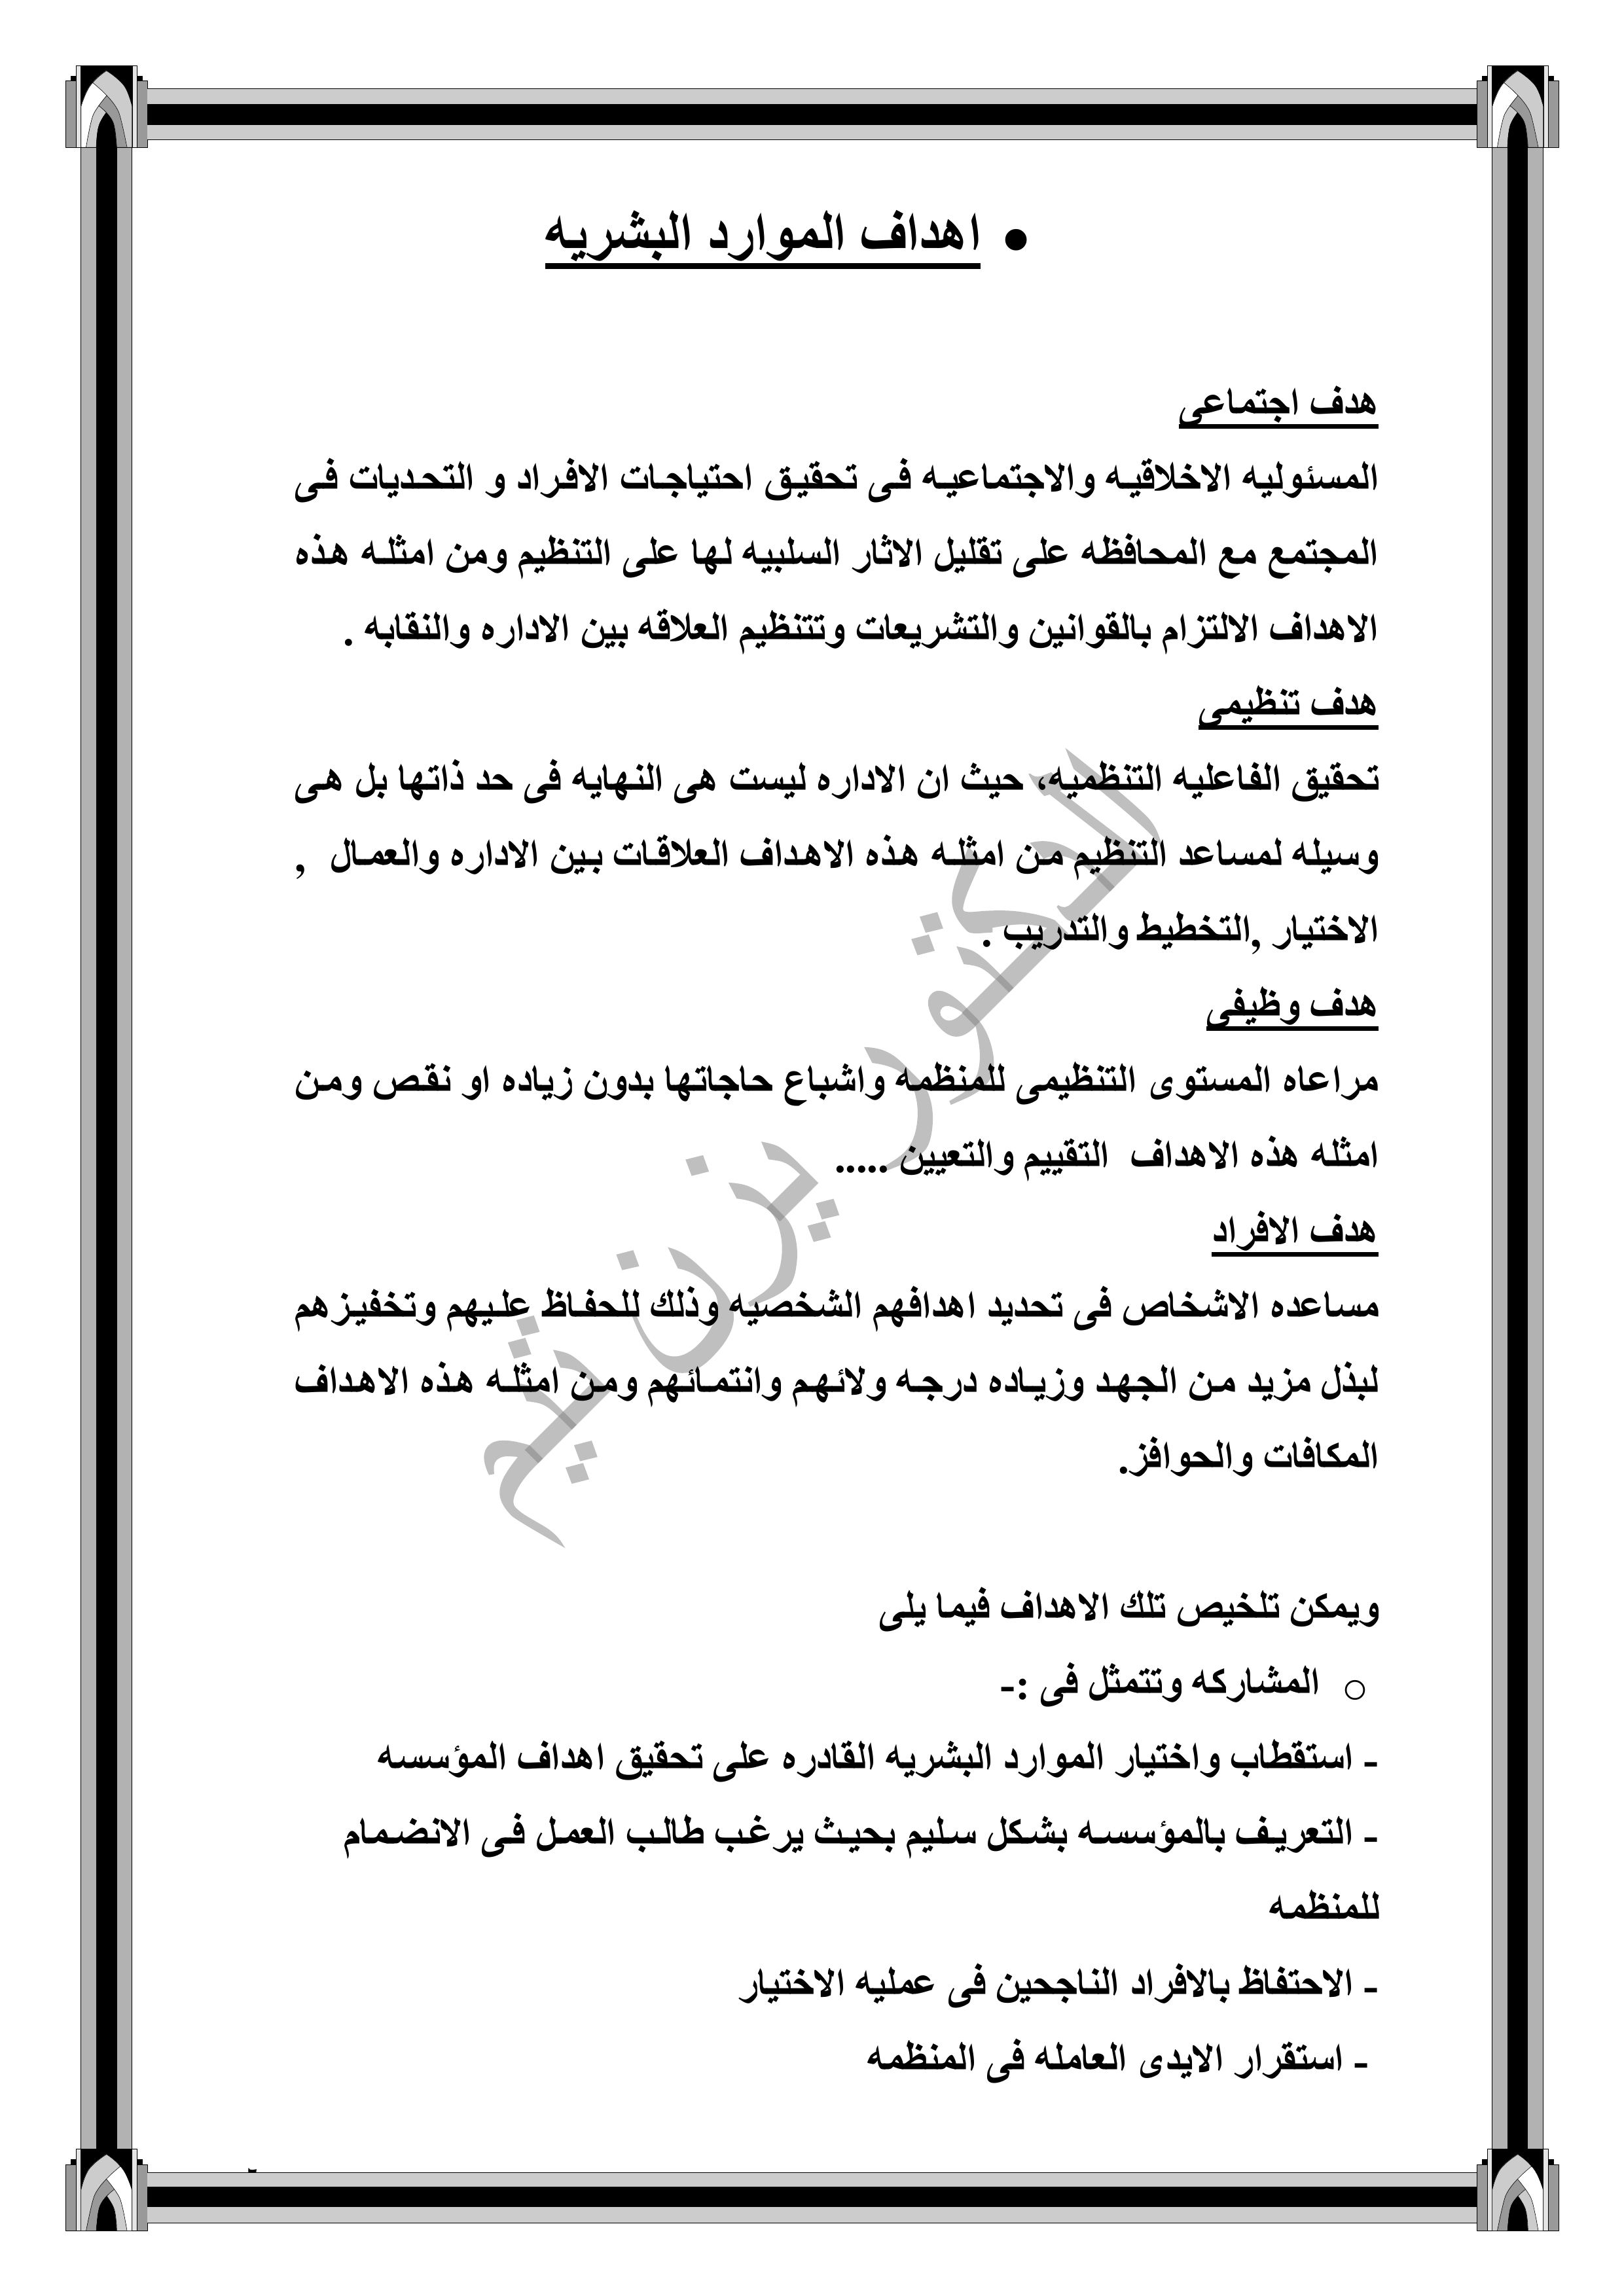 • اهداف الموارد البشريه
هدف اجتماعى
المسئوليه الاخلاقيه والاجتماعيه فى تحقيق احتياجات الافراد و التحديات فى
المجتمع مع المحافظه على تقليل الاثار السلبيه لها على التنظيم ومن امثله هذه
الاهداف الالتزام بالقوانين والتشريعات وتتنظيم العلاقه بين الاداره والنقابه .
هدف تنظيمى
تحقيق الفاعليه التنظميه، حيث ان الاداره ليست هى النهايه فى حد ذاتها بل هى
وسيله لمساعد التنظيم من امثله هذه الاهداف العلاقات بين الاداره والعمال ,
الاختيار ,التخطيط والتدريب .
هدف وظيفى
مراعاه المستوى التنظيمى للمنظمه واشباع حاجاتها بدون زياده او نقص ومن
امثله هذه الاهداف التقييم والتعيين .....
هدف الافراد
مساعده الاشخاص فى تحديد اهدافهم الشخصيه وذلك للحفاظ عليهم وتخفيزهم
لبذل مزيد من الجهد وزياده درجه ولائهم وانتمائهم ومن امثله هذه الاهداف
المكافات والحوافز.
ويمكن تلخيص تلك الاهداف فيما يلى
○ المشاركه وتتمثل فى :-
- استقطاب واختيار الموارد البشريه القادره على تحقيق اهداف المؤسسه
- التعريف بالمؤسسه بشكل سليم بحيث يرغب طالب العمل فى الانضمام
للمنظمه
- الاحتفاظ بالافراد الناجحين فى عمليه الاختيار
- استقرار الايدى العامله فى المنظمه
الدكتور يزن تيم